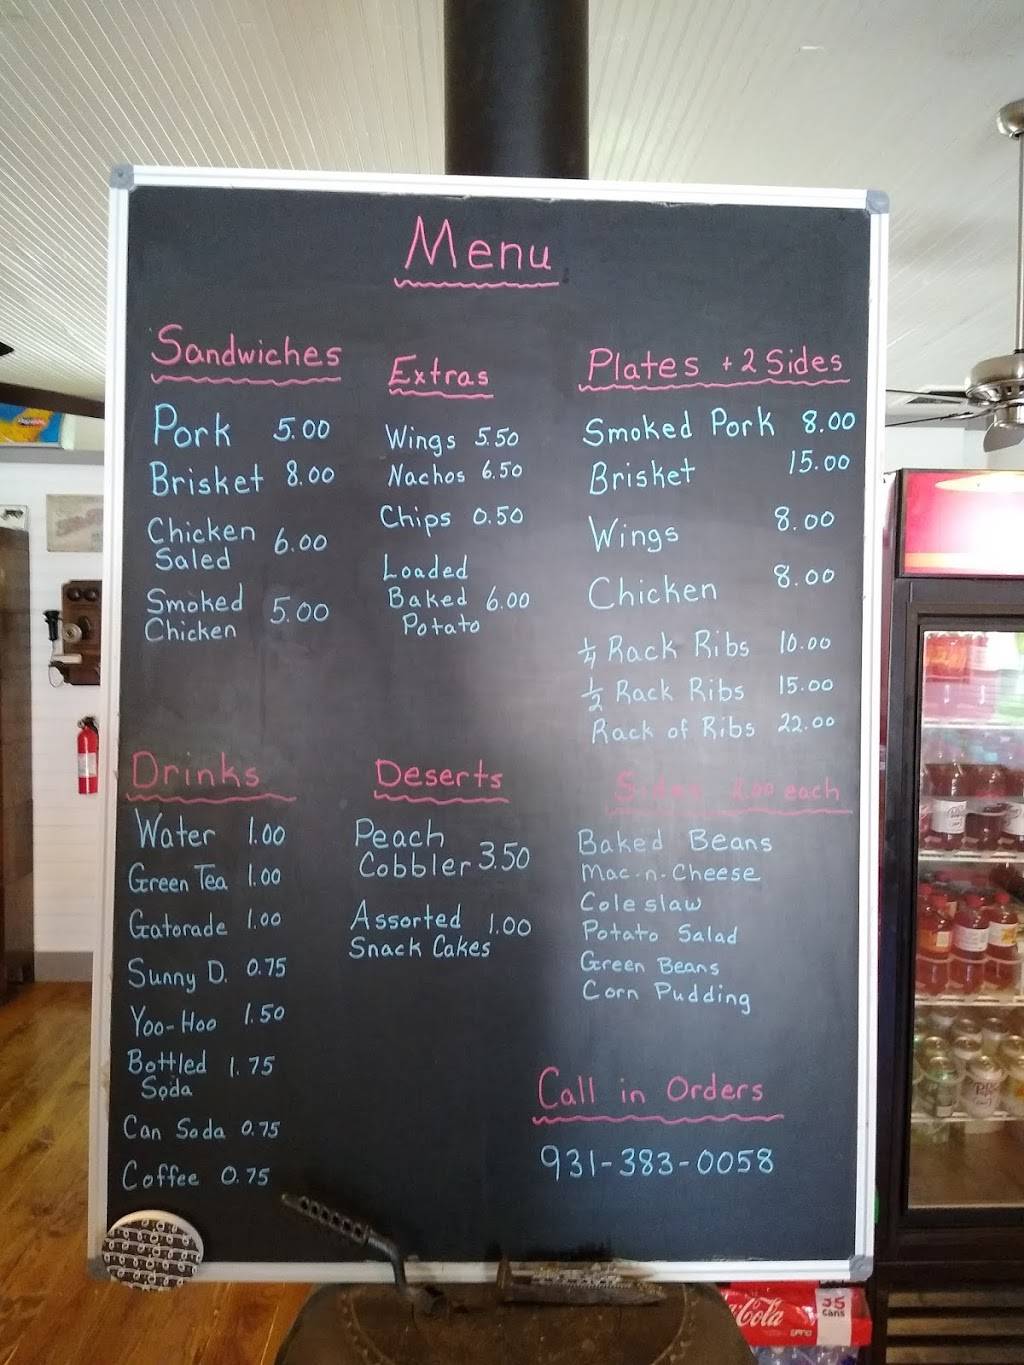 Menu
Sandwiches
Pork 5.00
Brisket 8.00
Chicken
Saled 6.00
Smoked
Chicken 5.00
Extras
Wings 5.50
Nachos 6.50
Chips 0.50
Loaded
Baked 6.00
Potato
Plates + 2 Sides
Smoked Pork 8.00
Brisket 15.00
Wings 8.00
Chicken 8.00
1/4 Rack Ribs 10.00
1/2 Rack Ribs 15.00
Rack of Ribs 22.00
Drinks
Water 1.00
Green Tea 1.00
Gatorade 1.00
Sunny D. 0.75
Yoo-Hoo 1.50
Bottled 1.75
Soda
Can Soda 0.75
Coffee 0.75
Deserts
Peach
Cobbler 3.50
Assorted 1.00
Snack Cakes
Sides 2.00 each
Baked Beans
Mac-n-Cheese
Cole slaw
Potato Salad
Green Beans
Corn Pudding
Call in Orders
931-383-0058
Coca-Cola
35
cans